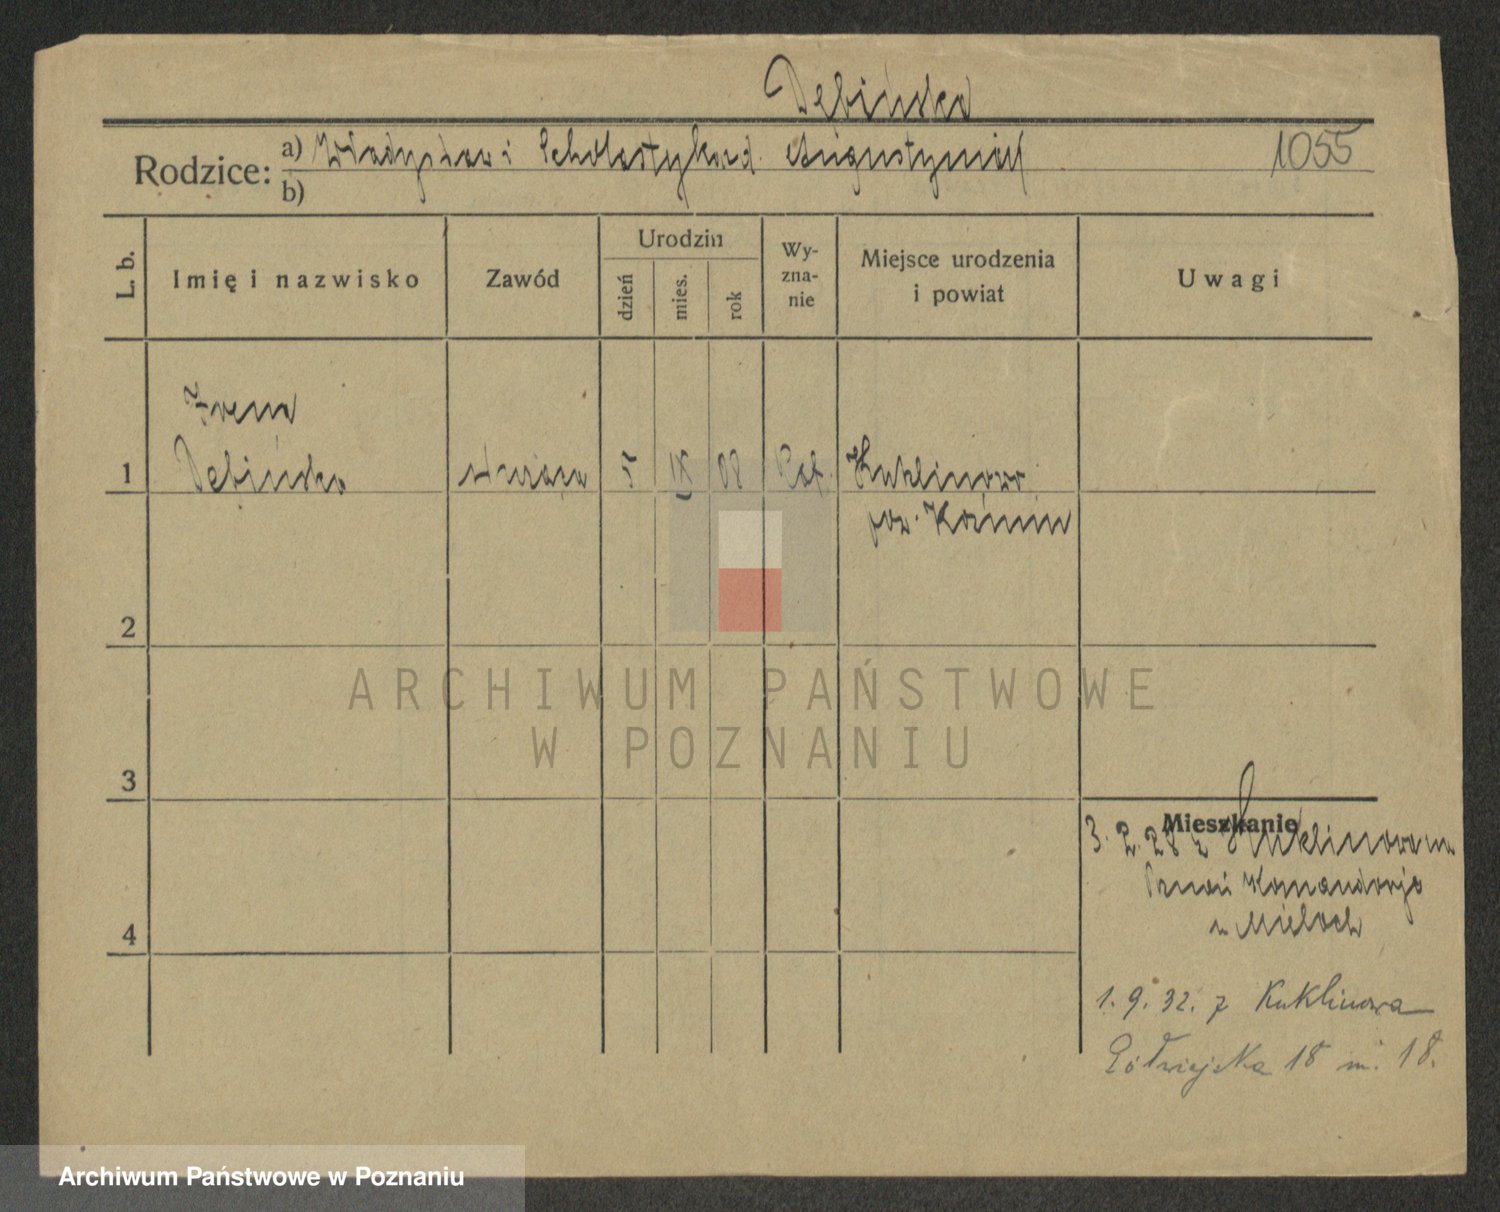 Dębińska
Rodzice: a) Władysław i Scholastyka d. Augustyniak 1055
b)
L. b. Imię i nazwisko Zawód Urodzin dzień mies. rok Wy-zna-nie Miejsce urodzenia i powiat Uwagi
Irena
1 Dębińska służąca 5 IX 08 Kat. Kuklinowo
pow. Koźmin
2
3
4
Mieszkanie
3. 2. 28 z Kuklinowa
Komandorja
u Mieloch
1. 9. 32. z Kuklinowa
Półwiejska 18 m. 18.
ARCHIWUM PAŃSTWOWE
W POZNANIU
Archiwum Państwowe w Poznaniu